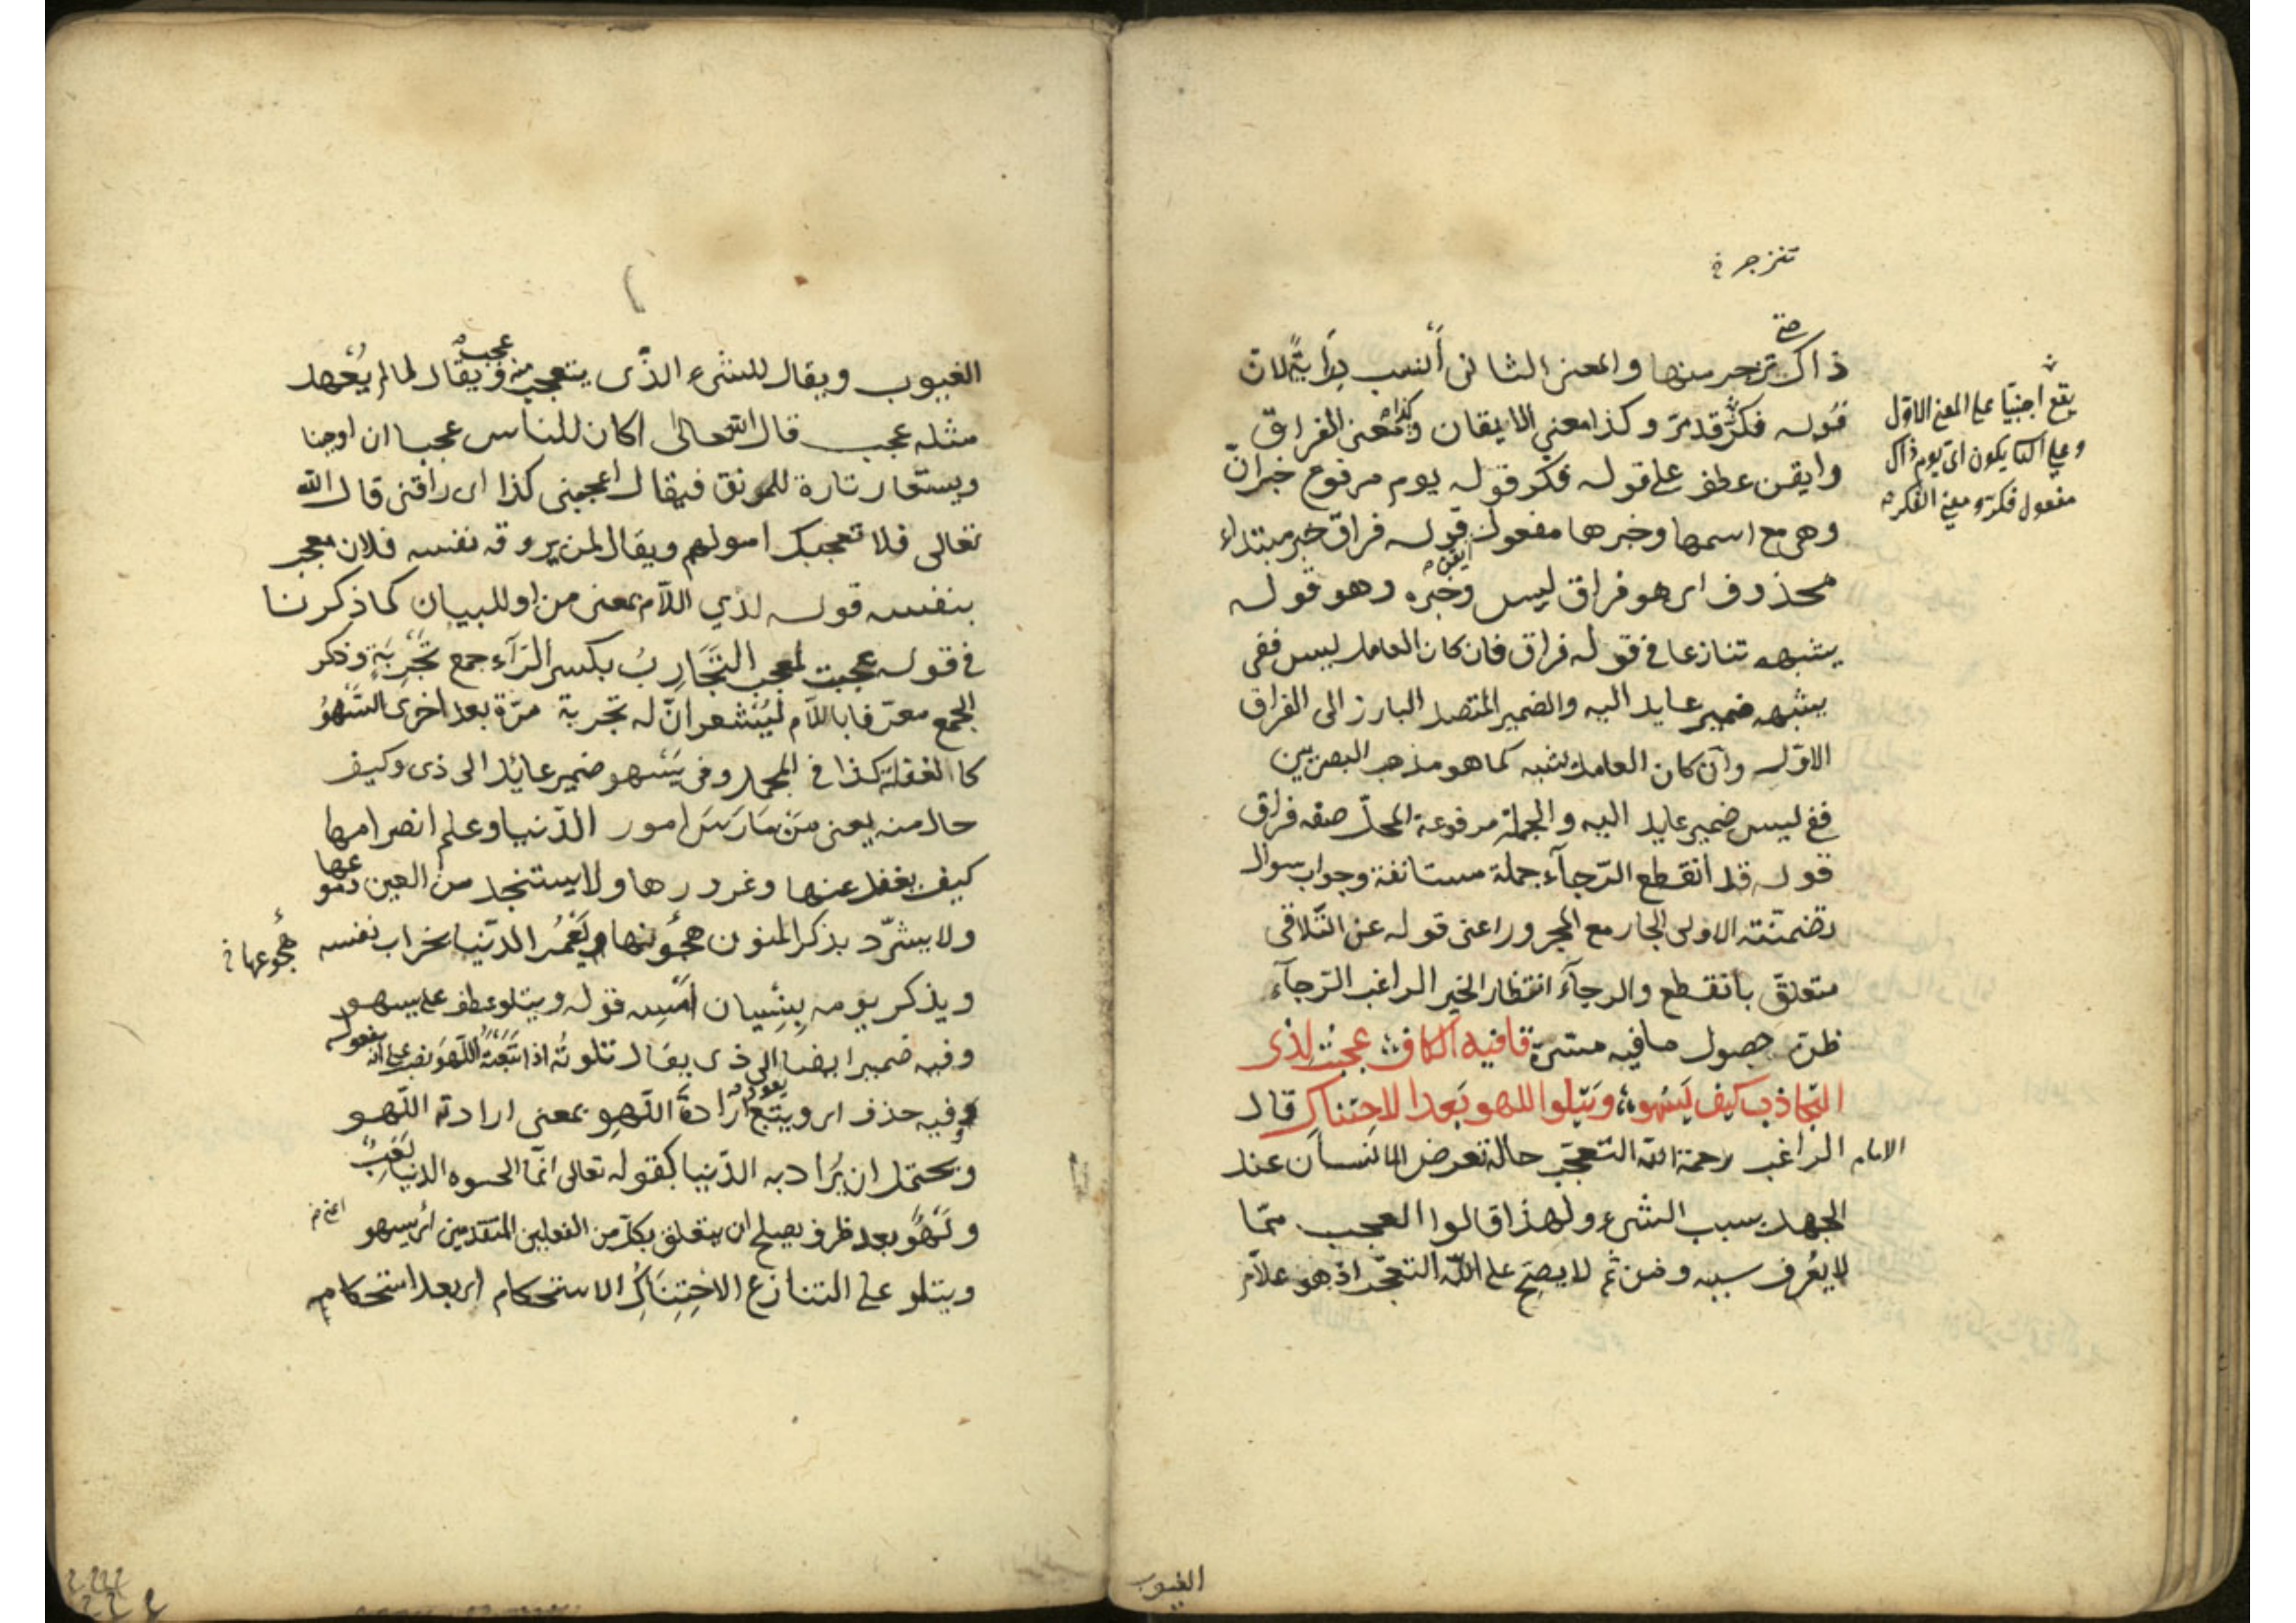 تنزجر خ
ذاك تزجر منها والمعنى الثانى أنسب دِرَايَةً لان
قوله فكرّ قد مرّ وكذا معنى الايقان وكذا معنى الفراق
وايقن عطف على قوله فكر قوله يوم مرفوع خبر انّ
وهى مع اسمها وخبرها مفعول ايقن قوله فراق خبر مبتداء
محذوف اى هو فراق ليس وخبره وهو قوله
يشبهه تنازعا فى قوله فراق فان كان العامل ليس ففى
يشبهه ضمير عايد اليه والضمير المتصل البارز الى الفراق
الاوّل وان كان العامل يشبه كما هو مذهب البصريين
ففى ليس ضمير عايد اليه والجملة مرفوعة المحلّ صفة فراق
قوله قد انقطع الرّجآء جملة مستانفة وجواب سوال
تضمنته الاولى الجار مع المجرور اعنى قوله عن التّلاقى
متعلق بانقطع والرجآء انتظار الخير الراغب الرّجآء
ظن حصول ما فيه مسرّة قافية الكاف عجبت لذى
التجاذب كيف يسهو ويتلوا اللهو بعد الاحتناك قال
الامام الراغب رحمة الله التعجّب حالة تعرض للانسان عند
الجهل بسبب الشىء ولهذا قالوا العجب ممّا
لا يعرف سببه ومن ثم لا يصحّ على الله التعجّب اذ هو علاّم
يقع اجنبيّا على المعنى الاوّل
وعلى الثا يكون اى يوم ذاك
مفعول فكر ومعنى الفكر
الغيوب
الغيوب ويقال للشىء الذّى يتعجب منه عجب ويقال لما لم يُعْهد
مثله عجب قال الله تعالى اكان للناس عجبا ان اوحينا
ويستعار تارة للمونق فيقال اعجبنى كذا اى راقنى قال الله
تعالى فلا تعجبك اموالهم ويقال لمن يروقه نفسه فلان معجب
بنفسه قوله لذي اللآم بمعنى من او للبيان كما ذكرنا
فى قوله عجبت لمعجب التَّجَارِبُ بكسر الرّآء جمع تَجْرِبَةٍ وذكر
الجمع معرّفا باللآم ليُشعر انّ له تجربة مرّة بعد اخرى السَّهْوُ
كالغفلة كذا فى المجمل وفى يَسْهو ضمير عائد الى ذى وكيف
حال منه يعنى مَنْ مَارَسَ امور الدّنيا وعلم انصرامها
كيف يغفل عنها وغرورها ولا يستنجد من العين دموعها
ولا يشرّد بذكر المنون هجونها ويَعْمُر الدّنيا بخراب نفسه
هُجوعها خ
ويذكر يومه بنِسْيان اَمْسِه قوله ويتلو عطف على يسهو
وفيه ضمير ايضا الى ذى يقال تلوته اذا تَبِعْتَهُ اللّهو نصب على انه مفعوله
وفيه حذف اى ويتبع ارادةَ اللّهو بمعنى ارادته اللّهو
ويحتمل ان يُرَاد به الدّنيا كقوله تعالى انّما الحيوه الدنيا لَعِبٌ
ولَهْوٌ بعد ظرف يصلح ان يتعلق بكل من الفعلين المتقدمين اى يسهو
اعنى خ
ويتلو على التنازع الاحْتِنَاكُ الاستحكام اى بعد استحكام